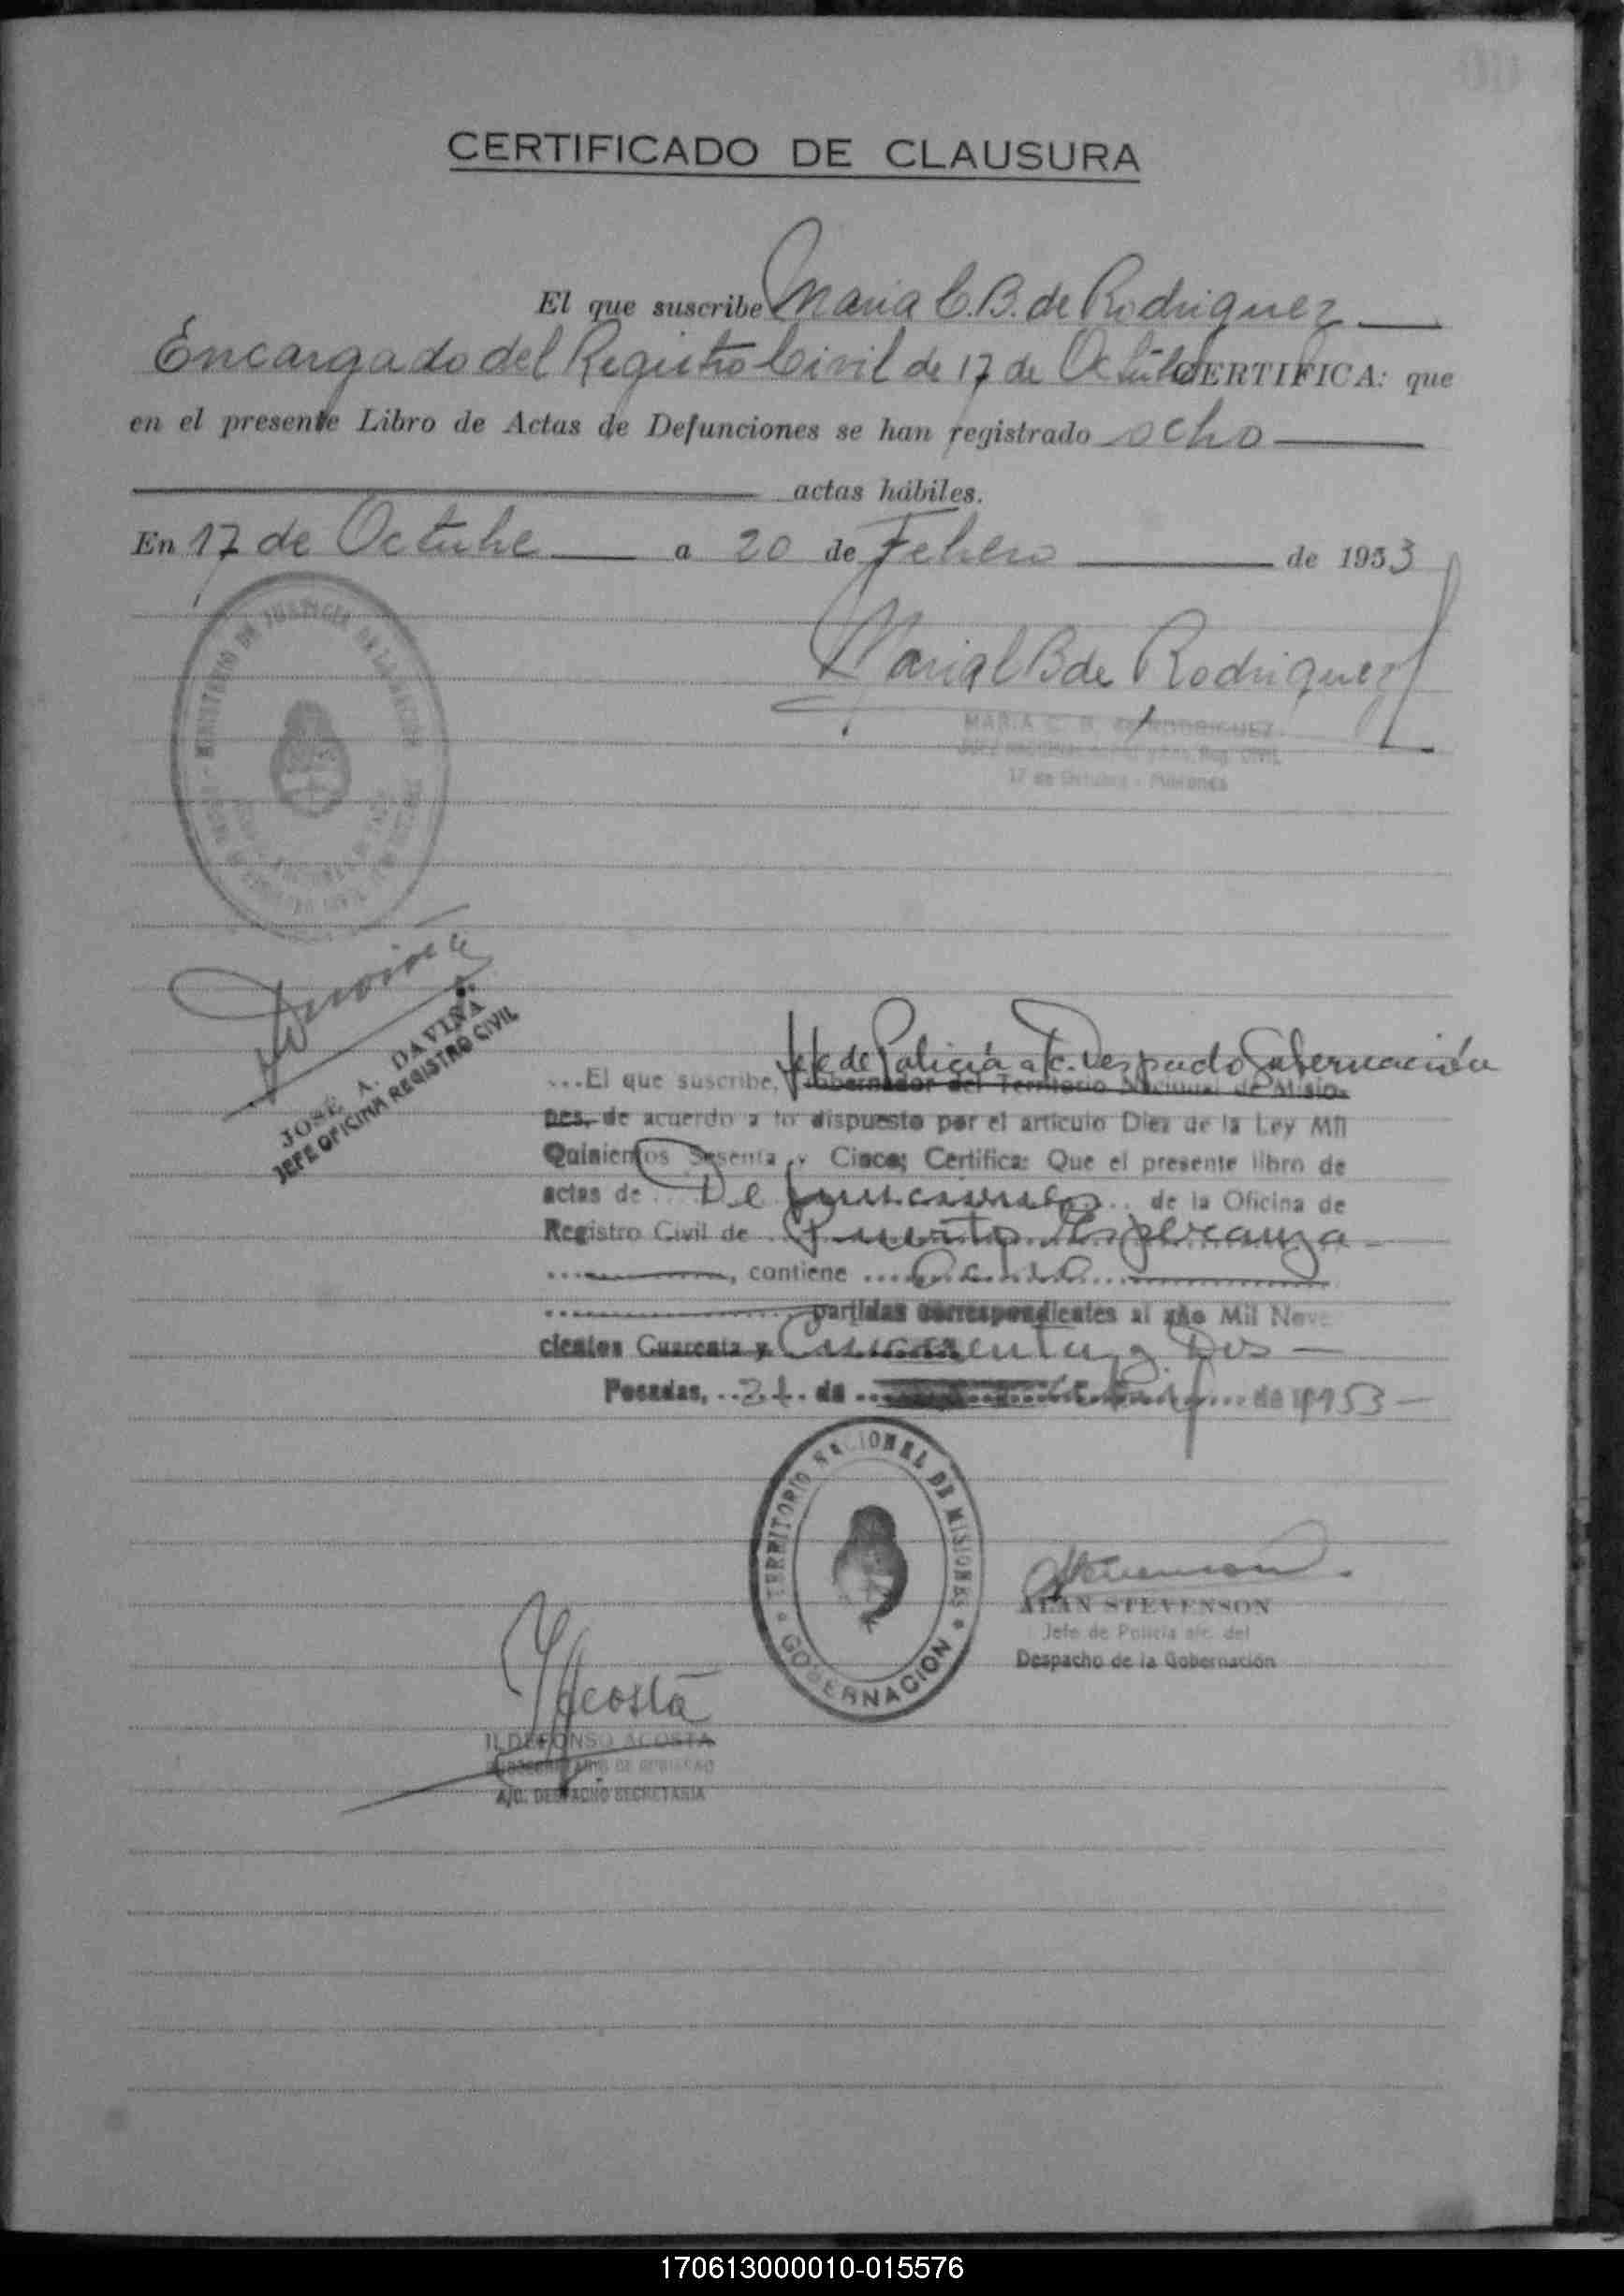 CERTIFICADO DE CLAUSURA
El que suscribe Maria C. B. de Rodriguez
Encargado del Registro Civil de 17 de Octubre CERTIFICA: que
en el presente Libro de Actas de Defunciones se han registrado ocho
actas hábiles.
En 17 de Octubre a 20 de Febrero de 1953
MINISTERIO DE JUSTICIA DE LA NACION
Maria C B de Rodriguez
MARIA C. B. de RODRIGUEZ
Reg. CIVIL
17 de Octubre - Misiones
JOSÉ A. DAVIÑA
JEFE OFICINA REGISTRO CIVIL
Jefe de Policía a/c. Despacho Gobernación
...El que suscribe, Gobernador del Territorio Nacional de Misio-
nes, de acuerdo a lo dispuesto por el artículo Diez de la Ley Mil
Quinientos Sesenta y Cinco; Certifica: Que el presente libro de
actas de Defunciones de la Oficina de
Registro Civil de Puerto Esperanza
, contiene
partidas correspondientes al año Mil Nove
cientos Cuarenta y Cincuenta y Dos
Posadas, de de 1953
TERRITORIO NACIONAL DE MISIONES
GOBERNACION
Stevenson
ALAN STEVENSON
Jefe de Policía a/c. del
Despacho de la Gobernación
Acosta
ILDEFONSO ACOSTA
SUBSECRETARIO DE GOBIERNO
A/C. DESPACHO SECRETARIA
170613000010-015576